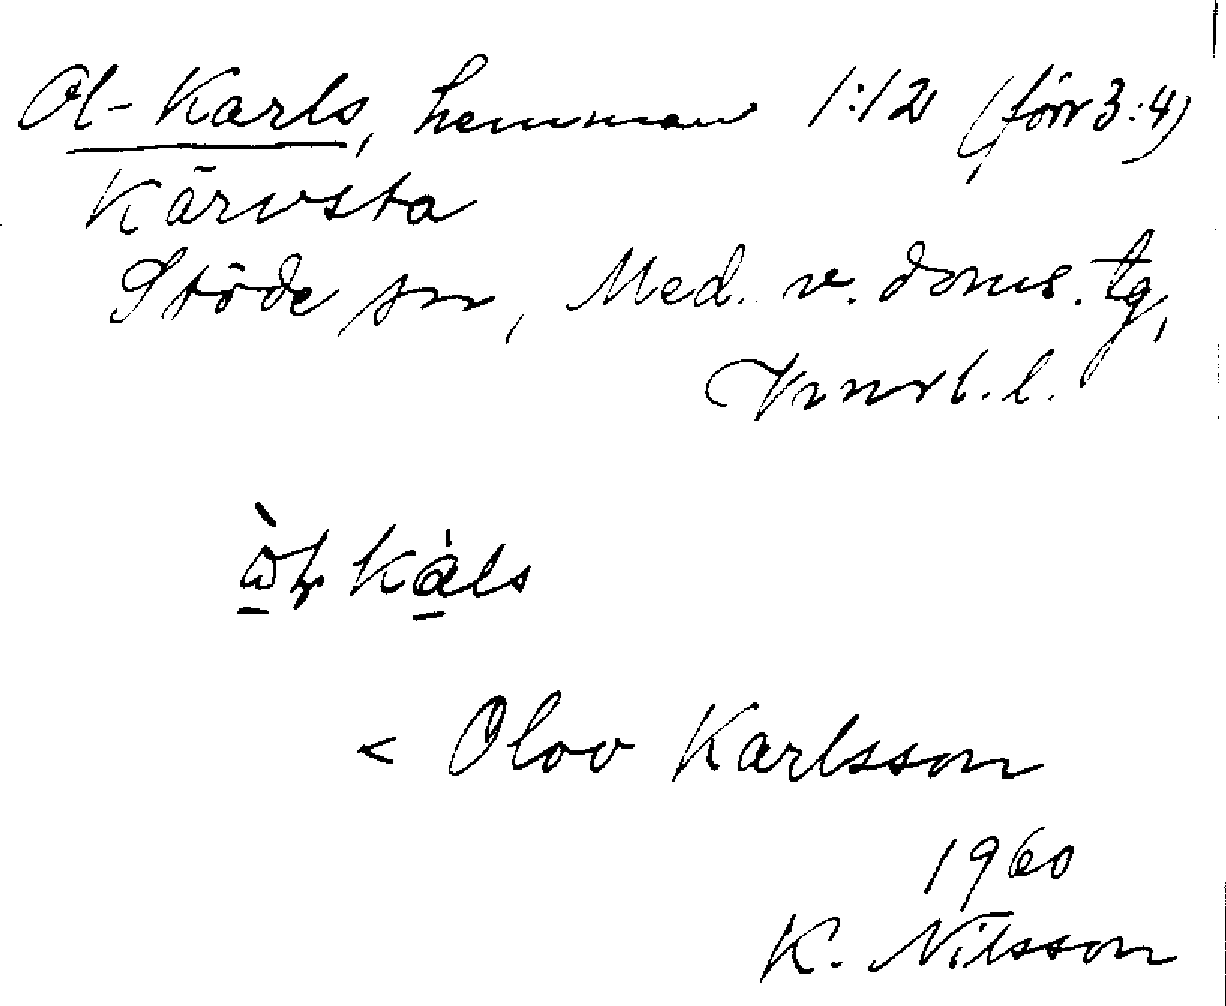 Ol-Karls, hemman 1:12 (förr 3:4)
Kärvsta
Stöde sn, Med. v. doms. tg,
Vnorl. l.
Kàls
< Olov Karlsson
1960
K. Nilsson